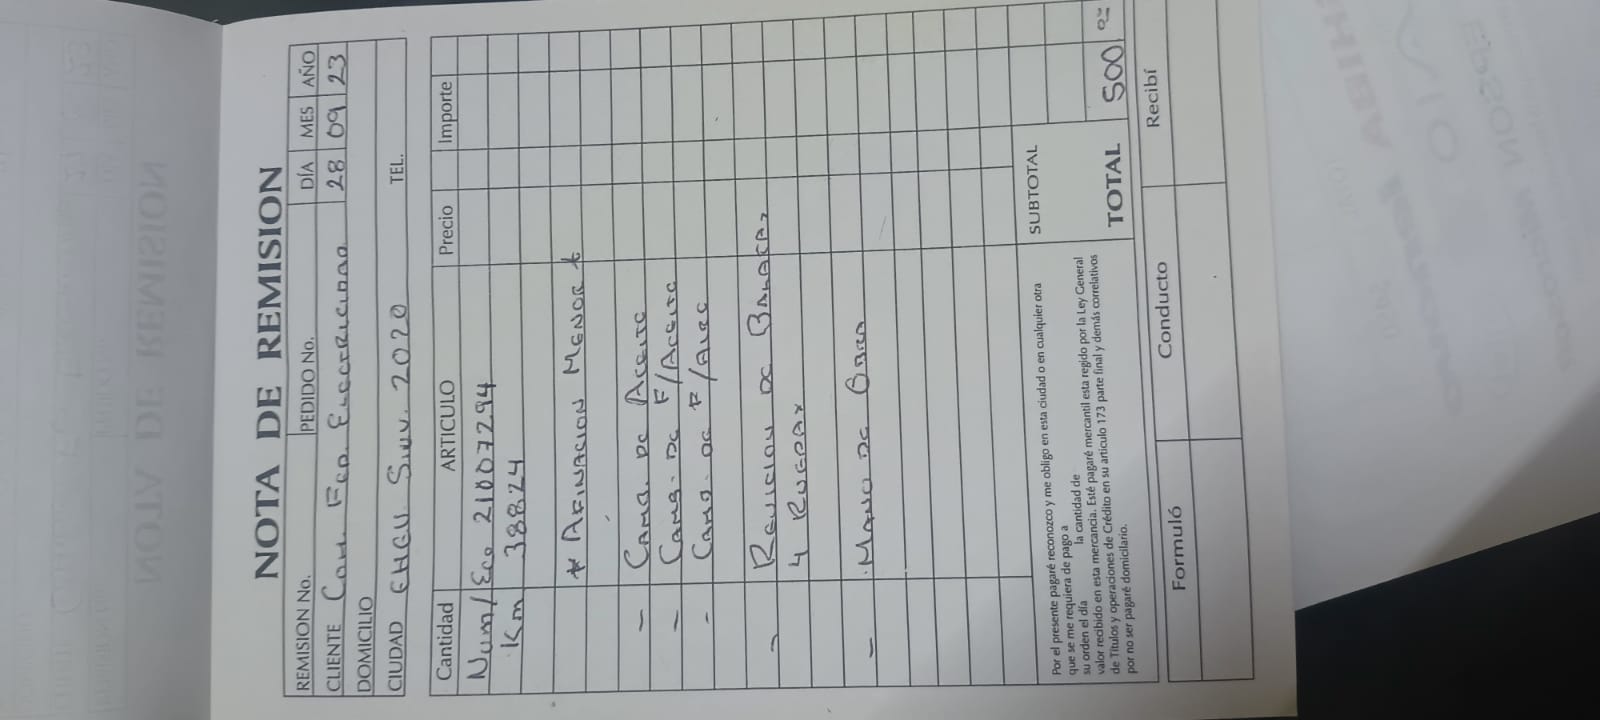 NOTA DE REMISION
REMISION No. PEDIDO No. DÍA MES AÑO
CLIENTE Com. Fed. Electricidad 28 09 23
DOMICILIO
CIUDAD CHEV. Silv. 2020 TEL.
Cantidad ARTICULO Precio Importe
Num/Eco 21007294
Km 38824
* AFINACION MENOR *
- CAMB. DE ACEITE
- CAMB. DE F/ACEITE
- CAMB. DE F/AIRE
- REVISION DE BALATAS
4 RUEDAS
- MANO DE OBRA
Por el presente pagaré reconozco y me obligo en esta ciudad o en cualquier otra
que se me requiera de pago a
su orden el día la cantidad de
valor recibido en esta mercancia. Esté pagaré mercantil esta regido por la Ley General
de Títulos y operaciones de Crédito en su articulo 173 parte final y demás correlativos
por no ser pagaré domicilario.
SUBTOTAL
TOTAL 500.00
Formuló Conducto Recibí